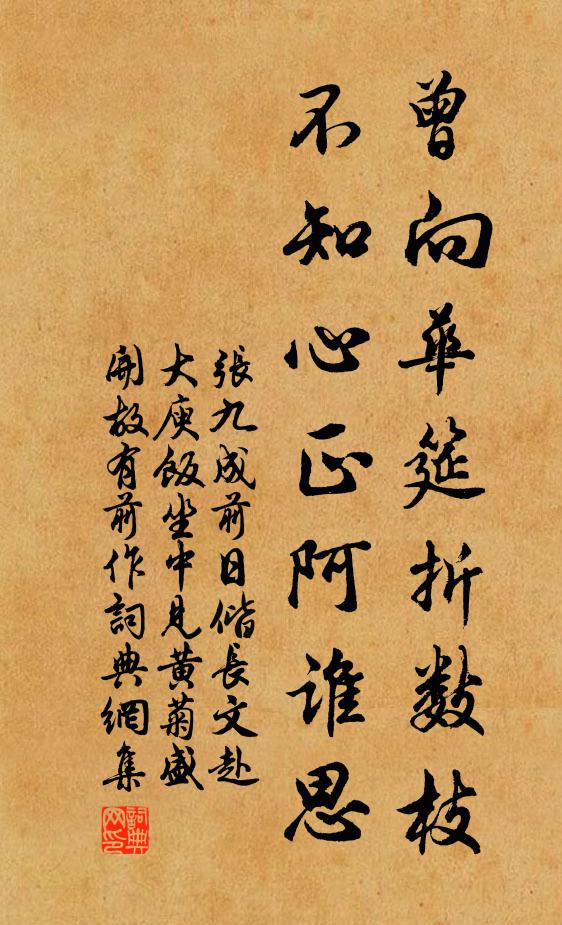 曾向華筵折数枝
不知心正阿谁思
張九成前日偕長文赴
大庾飯坐中見黃菊盛
開故有前作詞典網集
詞典網印